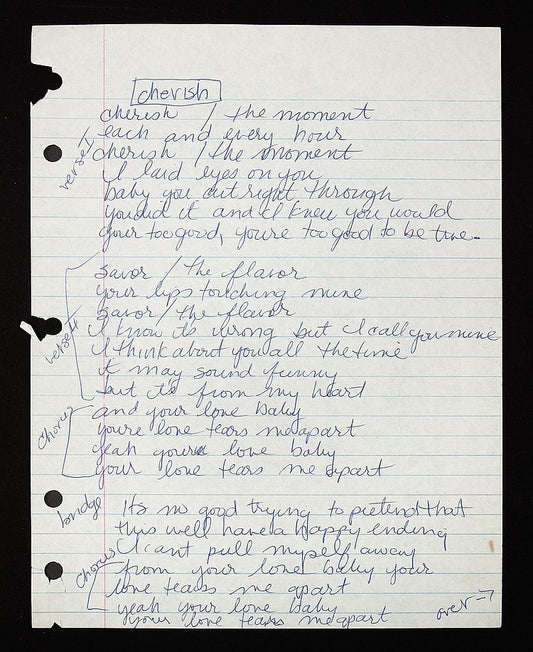 cherish
cherish / the moment
verse I
each and every hour
cherish / the moment
I laid eyes on you
baby you cut right through
you did it and I knew you would
your too good, youre too good to be true.
savor / the flavor
your lips touching mine
savor / the flavor
verse II
I know its wrong but I call you mine
I think about you all the time
it may sound funny
but its from my heart
Chorus
and your love baby
youre love tears me apart
yeah your love baby
your love tears me apart
bridge
Its no good trying to pretend that
this well have a happy ending
I cant pull myself away
Chorus
from your love baby your
love tears me apart
yeah your love baby
your love tears me apart
over →